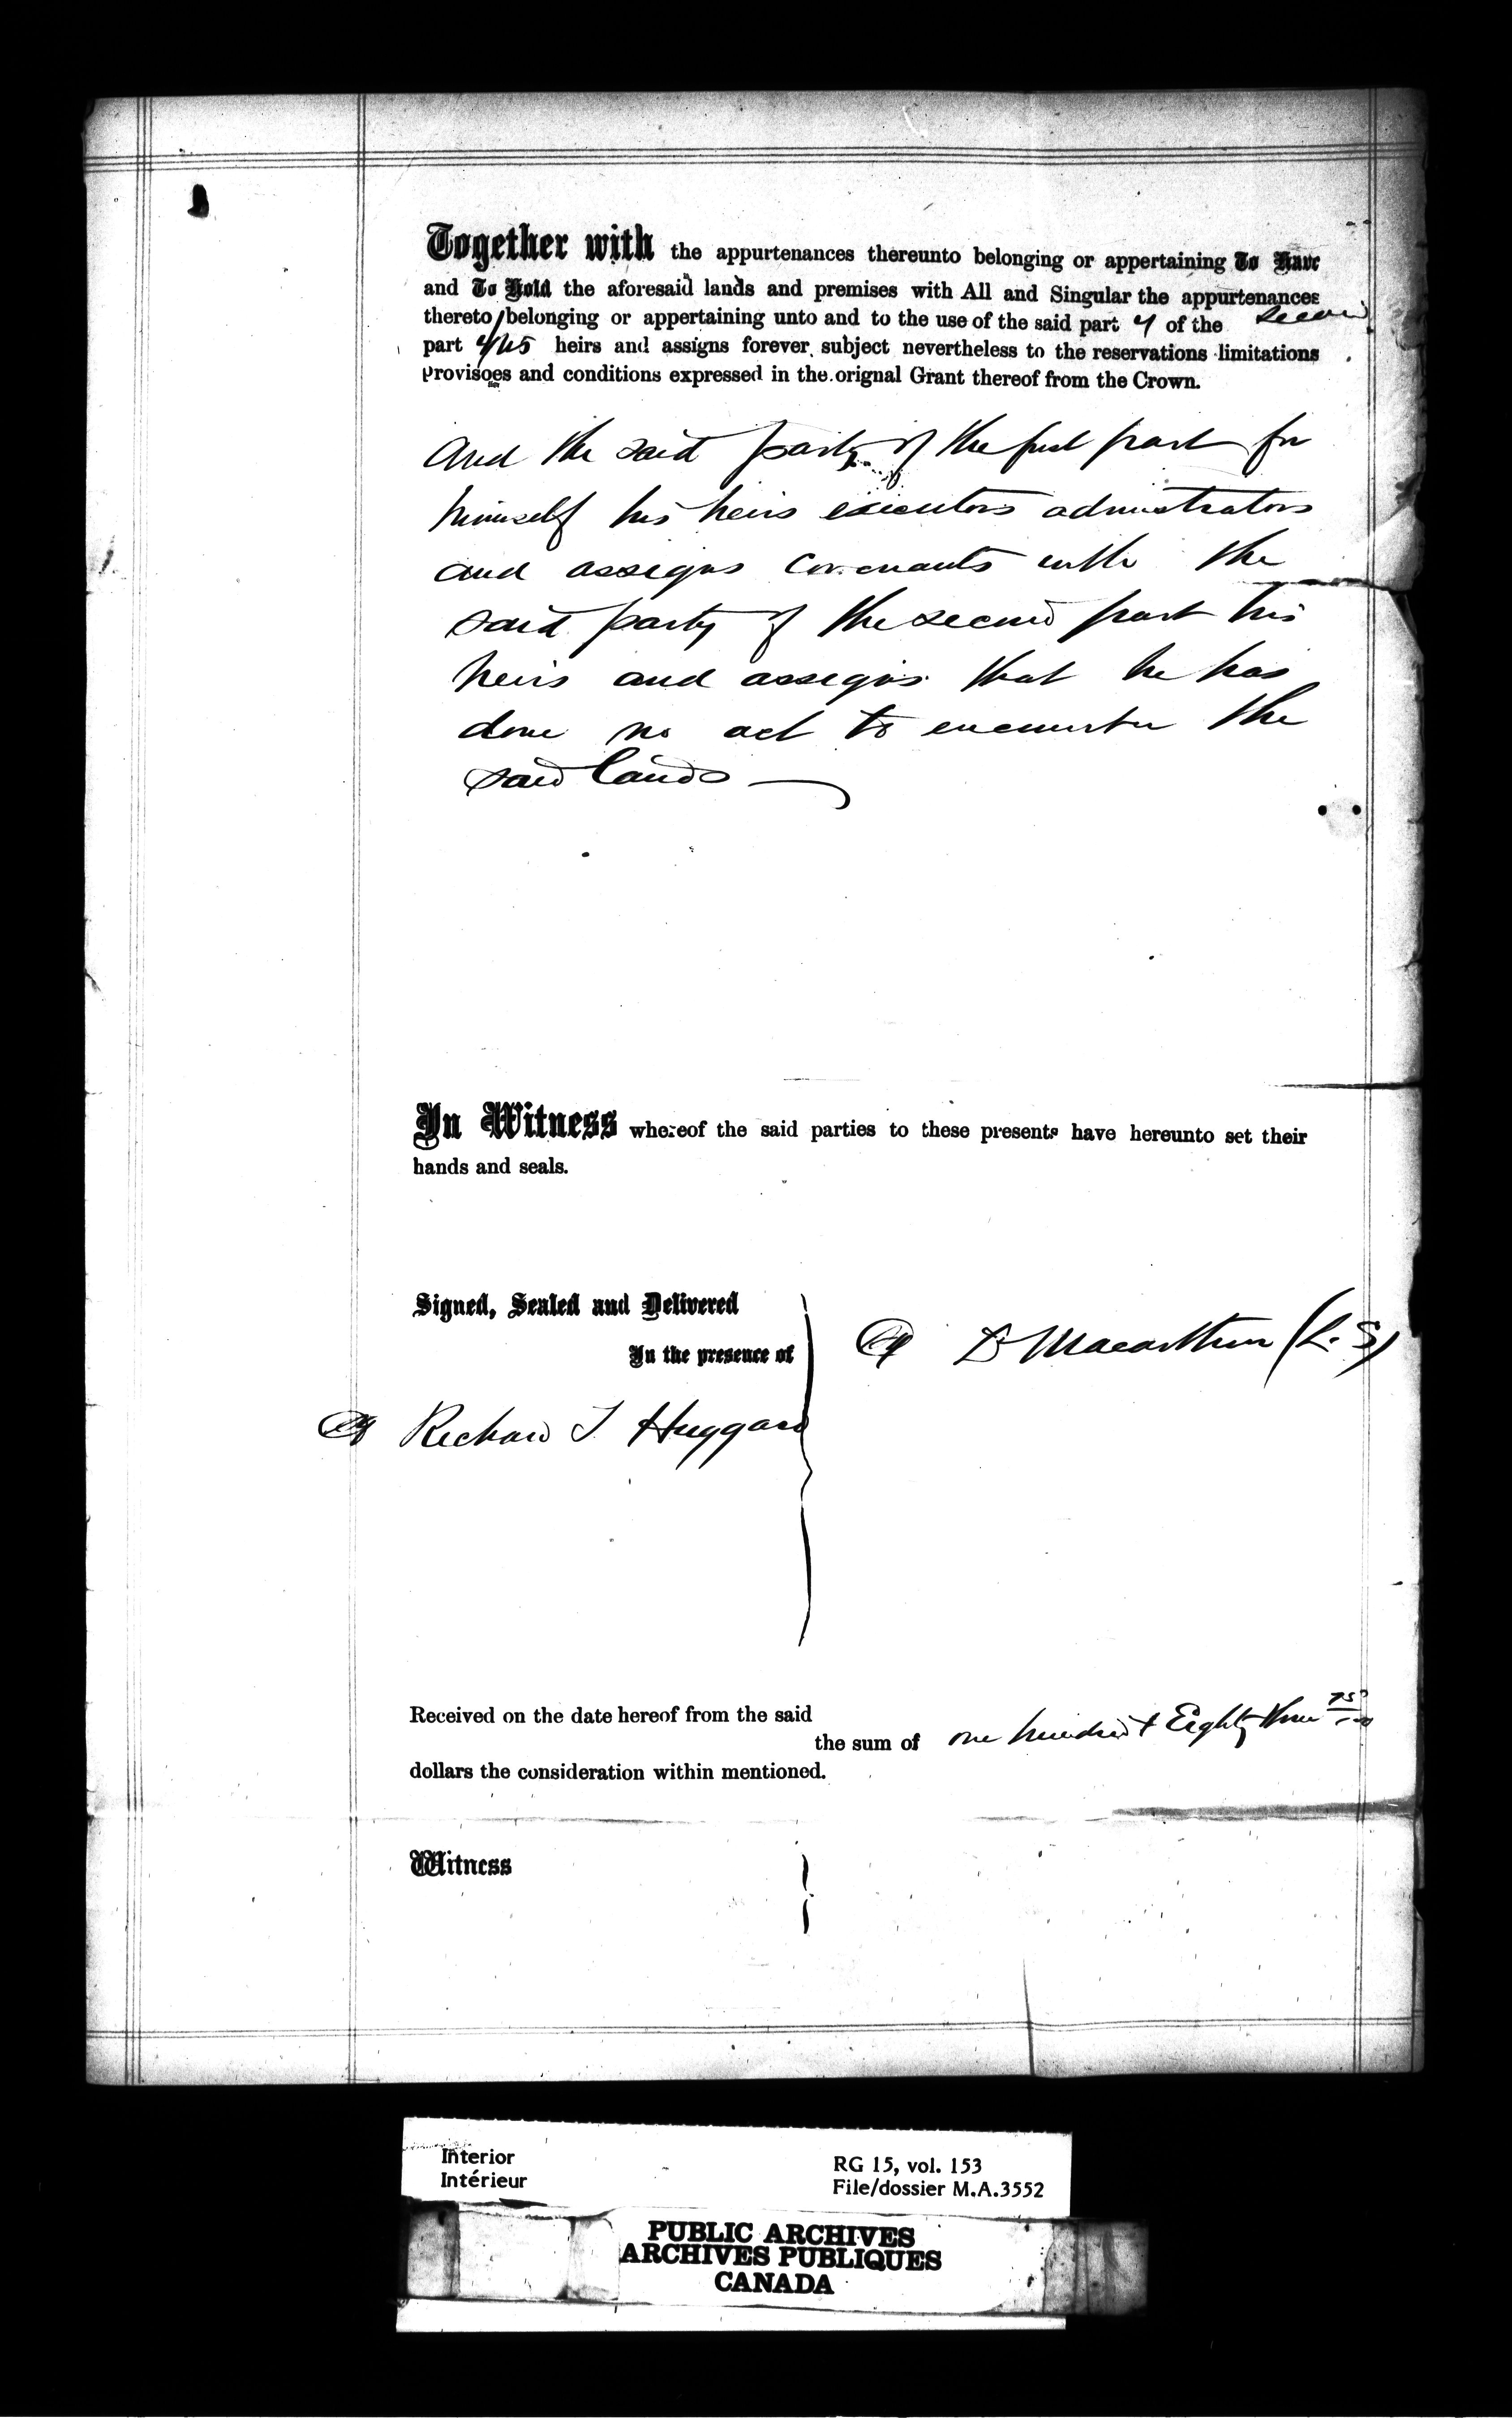 Together with the appurtenances thereunto belonging or appertaining To Have
and To Hold the aforesaid lands and premises with All and Singular the appurtenances
thereto belonging or appertaining unto and to the use of the said part y of the Second
part his heirs and assigns forever, subject nevertheless to the reservations limitations
Provisoes and conditions expressed in the orignal Grant thereof from the Crown.
And the said party of the first part for
himself his heirs executors admistrators
and assigns covenants with the
said party of the second part his
heirs and assigns that he has
done no act to encumber the
said lands
In Witness whereof the said parties to these presents have hereunto set their
hands and seals.
Signed, Sealed and Delivered
In the presence of
D Macarthur (L. S)
Richard J Huggard
Received on the date hereof from the said
the sum of one hundred & Eighty three 75/100
dollars the consideration within mentioned.
Witness
Interior
Intérieur
RG 15, vol. 153
File/dossier M.A.3552
PUBLIC ARCHIVES
ARCHIVES PUBLIQUES
CANADA